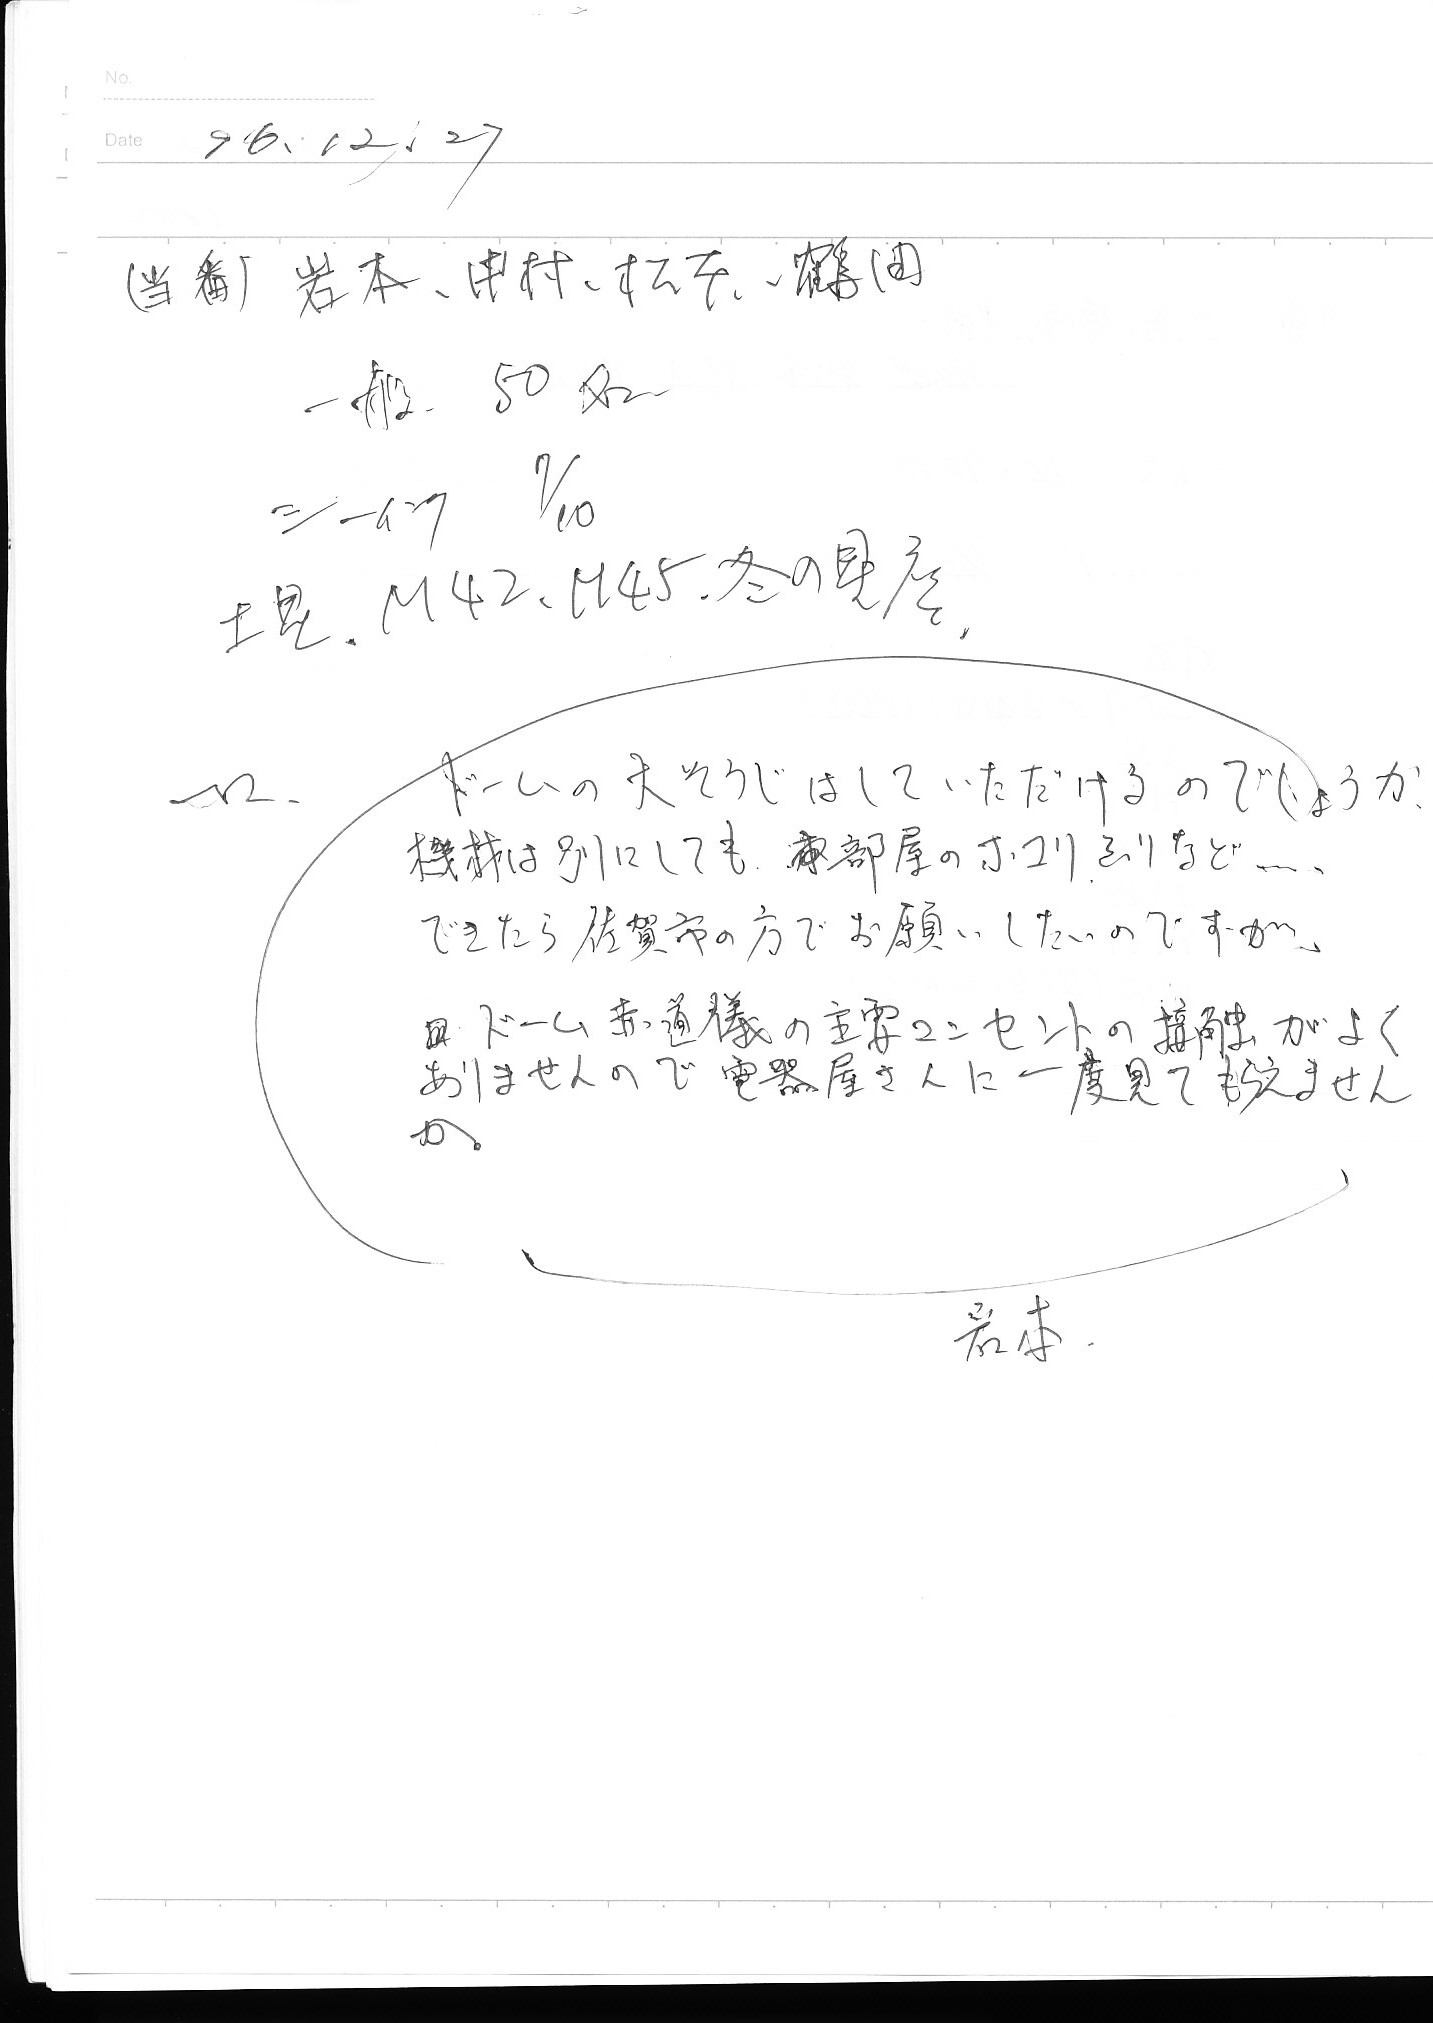 No.
Date 96.12.27
(当番) 岩本、中村、松本、、鶴田
一般 50名
シーイング 7/10
土星、M42、M45、冬の星座、
ドームの大そうじはしていただけるのでしょうか、
機材は別にしても、部屋のホコリふりなど……
できたら佐賀市の方でお願いしたいのですが、
ドーム赤道儀の主電コンセントの接触がよく
ありませんので電器屋さんに一度見てもらえません
か。
岩本.